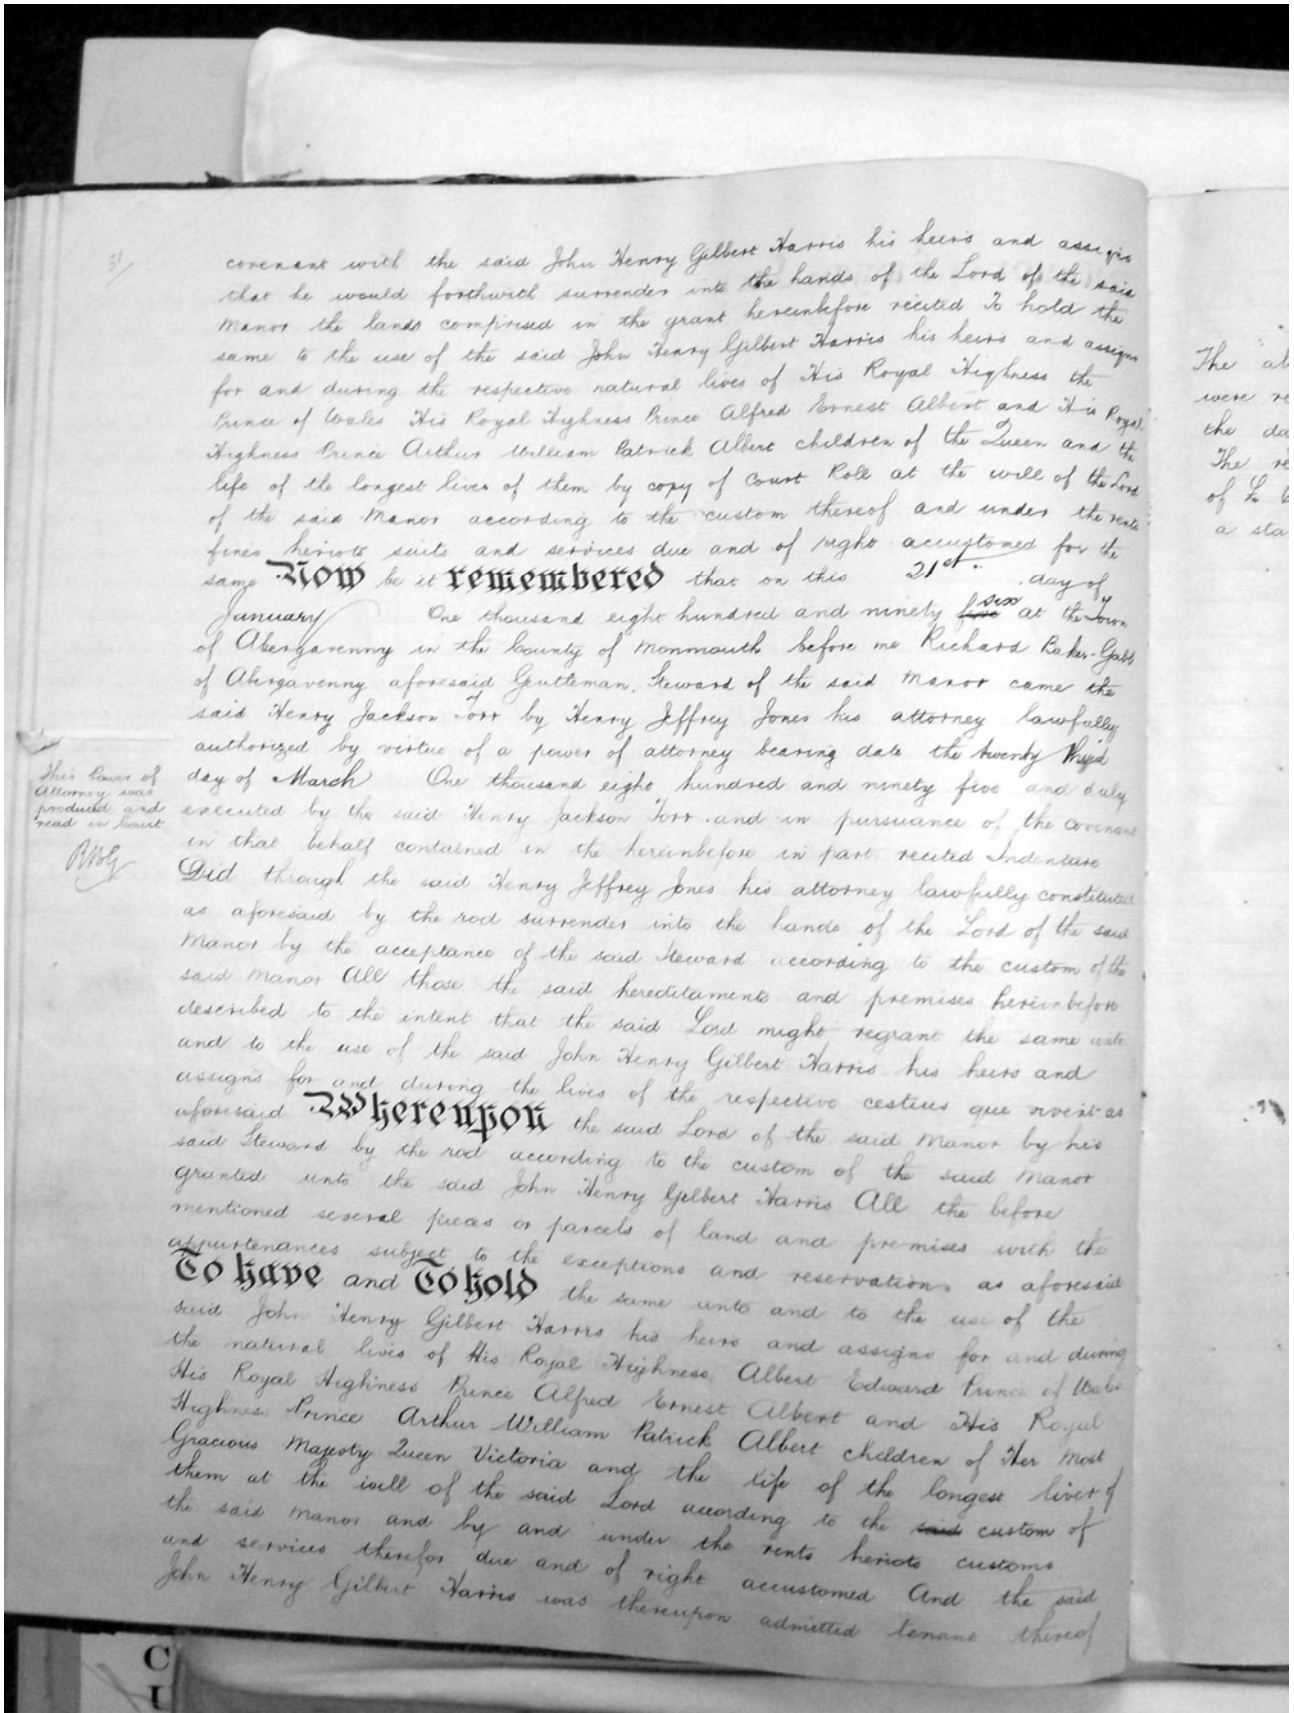 31/
covenant with the said John Henry Gilbert Harris his heirs and assigns
that he would forthwith surrender into the hands of the Lord of the said
Manor the lands comprised in the grant hereinbefore recited To hold the
same to the use of the said John Henry Gilbert Harris his heirs and assigns
for and during the respective natural lives of His Royal Highness the
Prince of Wales His Royal Highness Prince Alfred Ernest Albert and His Royal
Highness Prince Arthur William Patrick Albert children of the Queen and the
life of the longest liver of them by copy of Court Roll at the will of the Lord
of the said Manor according to the custom thereof and under the rents
fines heriots suits and services due and of right accustomed for the
same Now be it remembered that on this 21st. day of
January One thousand eight hundred and ninety five six at the Town
of Abergavenny in the County of Monmouth before me Richard Baker-Gabb
of Abergavenny aforesaid Gentleman, Steward of the said Manor came the
said Henry Jackson Torr by Henry Jeffrey Jones his attorney lawfully
authorized by virtue of a power of attorney bearing date the twenty third
day of March One thousand eight hundred and ninety five and duly
executed by the said Henry Jackson Torr and in pursuance of the covenant
in that behalf contained in the hereinbefore in part recited Indenture
Did through the said Henry Jeffrey Jones his attorney lawfully constituted
as aforesaid by the rod surrender into the hands of the Lord of the said
Manor by the acceptance of the said Steward according to the custom of the
said Manor All those the said hereditaments and premises hereinbefore
described to the intent that the said Lord might regrant the same unto
and to the use of the said John Henry Gilbert Harris his heirs and
assigns for and during the lives of the respective cestius que vivent as
aforesaid Whereupon the said Lord of the said Manor by his
said Steward by the rod according to the custom of the said Manor
granted unto the said John Henry Gilbert Harris All the before
mentioned several pieces or parcels of land and premises with the
appurtenances subject to the exceptions and reservations as aforesaid
To have and To hold the same unto and to the use of the
said John Henry Gilbert Harris his heirs and assigns for and during
the natural lives of His Royal Highness Albert Edward Prince of Wales
His Royal Highness Prince Alfred Ernest Albert and His Royal
Highness Prince Arthur William Patrick Albert children of Her Most
Gracious Majesty Queen Victoria and the life of the longest liver of
them at the will of the said Lord according to the said custom of
the said Manor and by and under the rents heriots customs
and services therefor due and of right accustomed And the said
John Henry Gilbert Harris was thereupon admitted tenant thereof
This Power of
Attorney was
produced and
read in Court
RBG
The
were
the
The
of
a
C